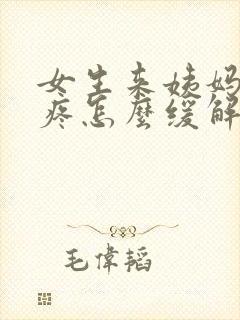 女生来姨妈
疼怎麼缓解
毛偉韬